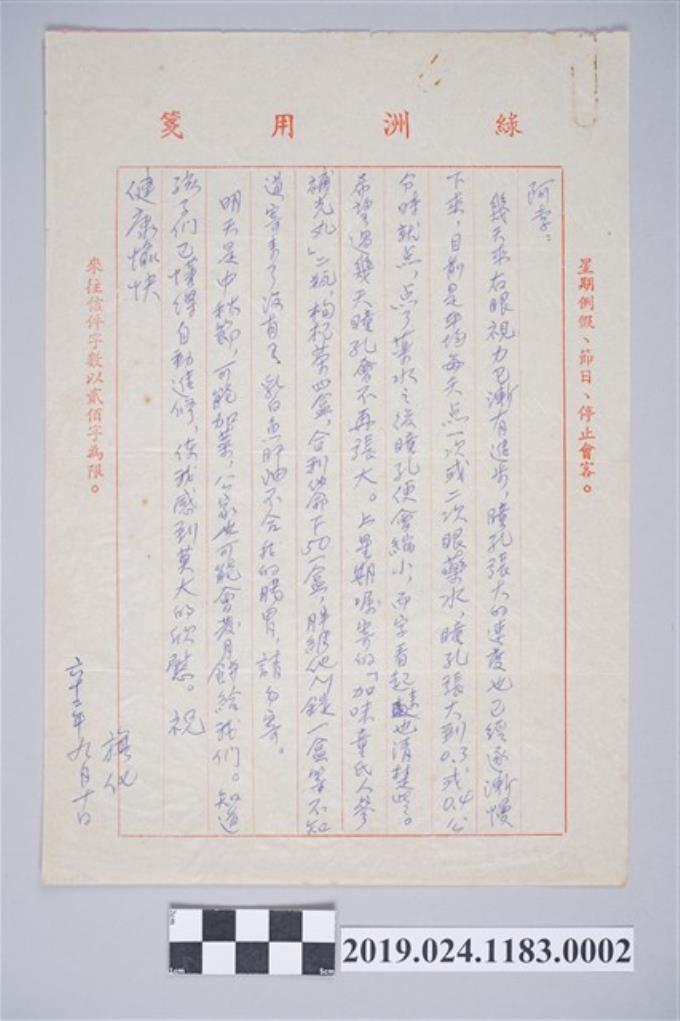 綠洲用箋
星期例假、節日、停止會客。
阿李：
幾天來右眼視力已漸有進步，瞳孔張大的速度也已經逐漸慢
下來，目前是平均每天点一次或二次眼藥水，瞳孔張大到0.3或0.4公
分時就点，点了藥水之後瞳孔便會縮小，而字看起來也清楚些。
希望過幾天瞳孔會不再張大。上星期囑寄的「加味童氏人參
補克丸」二瓶，枸杞菜四盒，合利他命下50一盒，胖維他八錠一盒等不知
道寄來了沒有？乳白魚肝油不合我的腸胃，請勿寄。
明天是中秋節，可能加菜，公家也可能會發月餅給我们。知道
孩子们已懂得自動進修，使我感到莫大的欣慰。祝
健康愉快
旗化
六十三年九月十日
來往信件字數以貳佰字為限。
2019.024.1183.0002